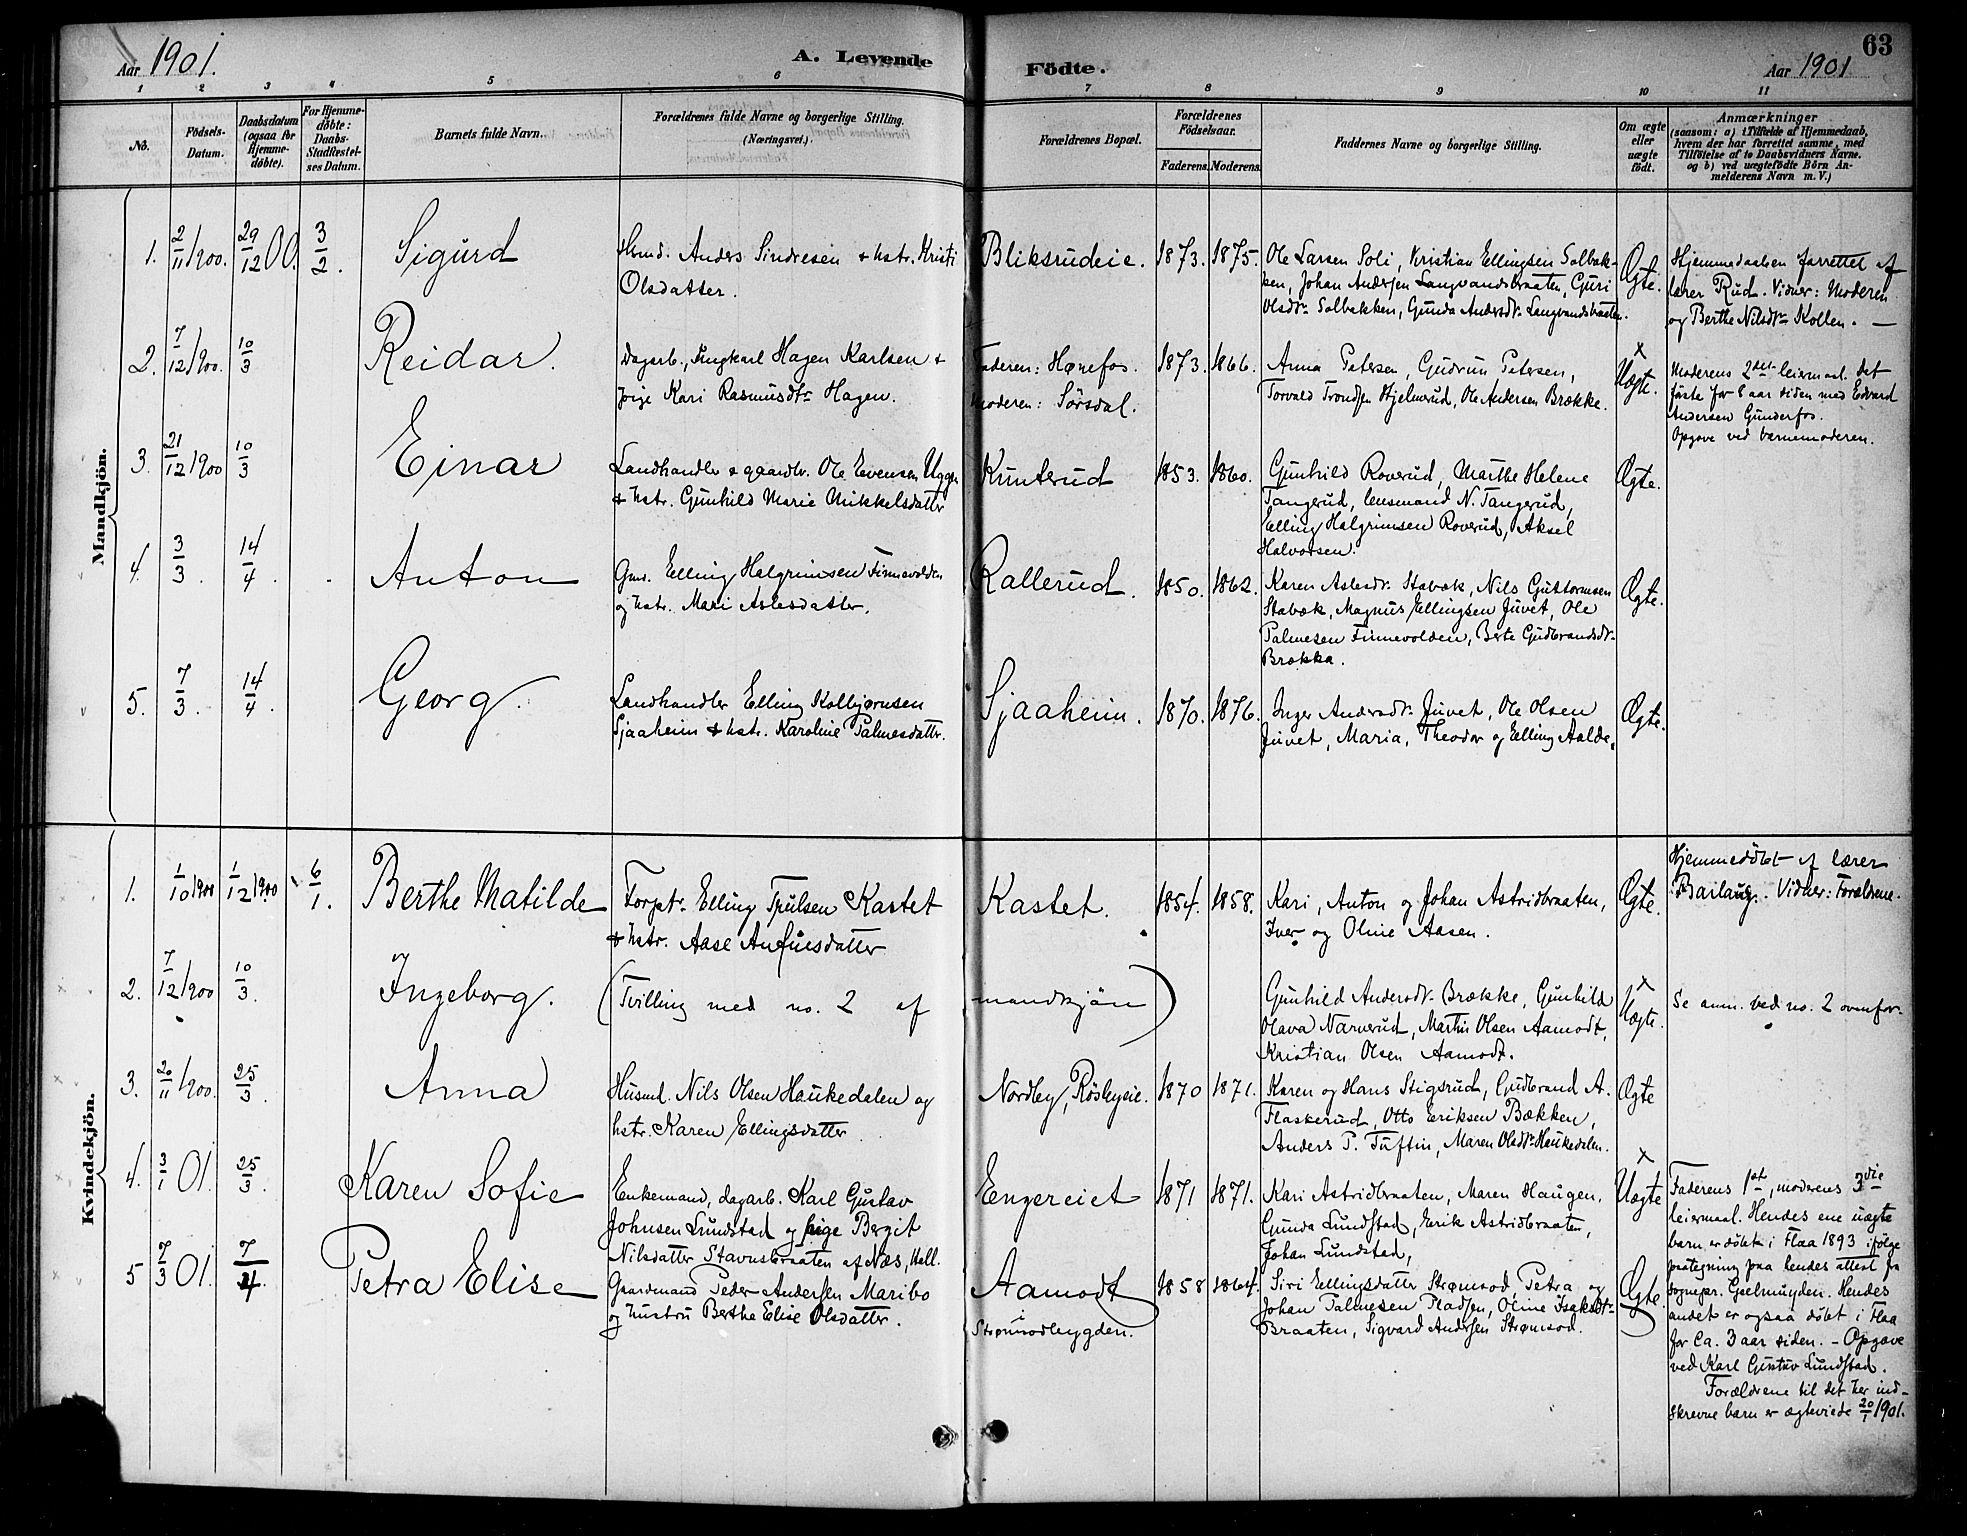 Aar 1901. A. Levende Födte. Aar 1901 63
1 2 3 4 5 6 7 8 9 10 11
No.
Födsels-Datum.
Daabsdatum (ogsaa for Hjemme-döbte).
For Hjemme-döbte: Daabs-Stadfæstel-ses Datum.
Barnets fulde Navn.
Forældrenes fulde Navne og borgerlige Stilling. (Næringsvei.)
Forældrenes Bopæl.
Forældrenes Födselsaar.
Faderens. Moderens.
Faddernes Navne og borgerlige Stilling.
Om ægte eller uægte födt.
Anmærkninger
(saasom: a) i Tilfælde af Hjemmedaab,
hvem der har forrettet samme, med
Tilföielse af to Daabsvidners Navne.
og b) ved uægtefödte Börn An-
melderens Navn m. V.)
Mandkjön.
1. 2/11 1900. 29/12 00. 3/2. Sigurd
Husmd. Anders Sindresen & hstr. Kristi
Olsdatter.
Bliksrudeie. 1873. 1875.
Ole Larsen Soli, Kristian Ellingsen Solbak-
ken, Johan Andersen Langvandsbraaten, Guri
Olsdtr. Solbakken, Gunda Andersdtr. Langvandsbraaten.
Ægte.
Hjemmedaaben forrettet af
lærer Rud. Vidner: Moderen
og Berthe Nilsdtr. Kollen. —
2. 7/12 1900. 10/3 Reidar.
Dagarb., Ungkarl Hagen Karlsen &
pige Kari Rasmusdtr. Hagen.
Faderen: Hønefos.
Moderen: Sørsdal.
1873. 1866.
Anna Petersen, Gudrun Petersen,
Torvald Trondsen Hjelmerud, Ole Andersen Brække.
x
Uægte.
Moderens 2det leiermaal. Det
første for 8 aar siden med Edvard
Andersen Gunderfos.
Opgave ved barnemoderen.
3. 21/12 1900 10/3 Einar
Landhandler & gaardbr. Ole Evensen Uggen
& hstr. Gunhild Marie Mikkelsdatter
Kunterud 1853. 1860.
Gunhild Roverud, Marthe Helene
Tangerud, lensmand N. Tangerud,
Elling Halgrimsen Roverud, Aksel
Halvorsen.
Ægte.
4. 3/3. 14/4. Anton
Gmr. Elling Halgrimsen Finnevolden
og hstr. Mari Aslesdatter.
Rallerud. 1850. 1862.
Karen Aslesdtr. Stabæk, Nils Guttormsen
Stabæk, Magnus Ellingsen Juvet, Ole
Palmesen Finnevolden, Berte Gudbrandsdtr.
Brække.
Ægte.
5. 7/3. 14/4. Georg.
Landhandler Elling Kolbjørnsen
Sjaaheim & hstr. Karoline Palmesdatter.
Sjaaheim. 1870. 1876.
Inger Andersdtr. Juvet, Ole Olsen
Juvet, Maria, Theodor og Elling Aalde.
Ægte.
Kvindekjön.
1. 1/10 1900 1/12 1900 6/1. Berthe Matilde
Forptr. Elling Trulsen Kastet
& hstr. Aase Anfinsdatter
Kastet. 1854. 1858.
Kari, Anton og Johan Astridbraaten,
Iver og Oline Aasen.
Ægte.
Hjemmedøbt af lærer
Bailaug. Vidner: Forældrene.
2. 7/12 1900 10/3. Ingeborg.
(Tvilling med no. 2 af mandkjön)
Gunhild Andersdtr. Brække, Gunhild
Olava Narverud, Martin Olsen Aamodt,
Kristian Olsen Aamodt.
x
Uægte.
Se anm. ved no. 2 ovenfor.
3. 20/11 1900. 25/3. Anna
Husmd. Nils Olsen Haukedalen og
hstr. Karen Ellingsdatter.
Nordby, Rösbyeie. 1870 1871.
Karen og Hans Stigsrud, Gudbrand A.
Flaskerud, Otto Eriksen Bækken,
Anders P. Tuftin, Maren Olsdtr. Haukedalen.
Ægte
4. 3/1 01. 25/3. Karen Sofie
Enkemand, dagarb. Karl Gustav
Johnsen Lundstad og pige Bergit
Nilsdatter Stavnsbraaten af Næs, Hall.
Engereiet 1871 1871.
Kari Astridbraaten, Maren Haugen,
Gunda Lundstad, Erik Astridbraaten,
Johan Lundstad,
x
Uægte
Faderens 1ste, moderens 3die
leiermaal. Hendes ene uægte
barn er døbt i Flaa 1893 ifølge
paategning paa hendes attest fra
sognepr. Gjelmuyden. Hendes
andet er ogsaa döbt i Flaa
for ca. 3 aar siden. – Opgave
ved Karl Gustav Lundstad.
Forældrene til det her ind-
skrevne barn er ægteviede 20/1 1901.
5 7/3 01. 7/4. Petra Elise
Gaardmand Peder Andersen Maribo
og hustru Berthe Elise Olsdatter.
Aamodt
i
Strømsodbygden.
1858 1864.
Siri Ellingsdatter Strømsod, Petra og
Johan Palmesen Pladsen, Oline Isaksdtr.
Braaten, Sigvard Andersen Strømsod.
Ægte.